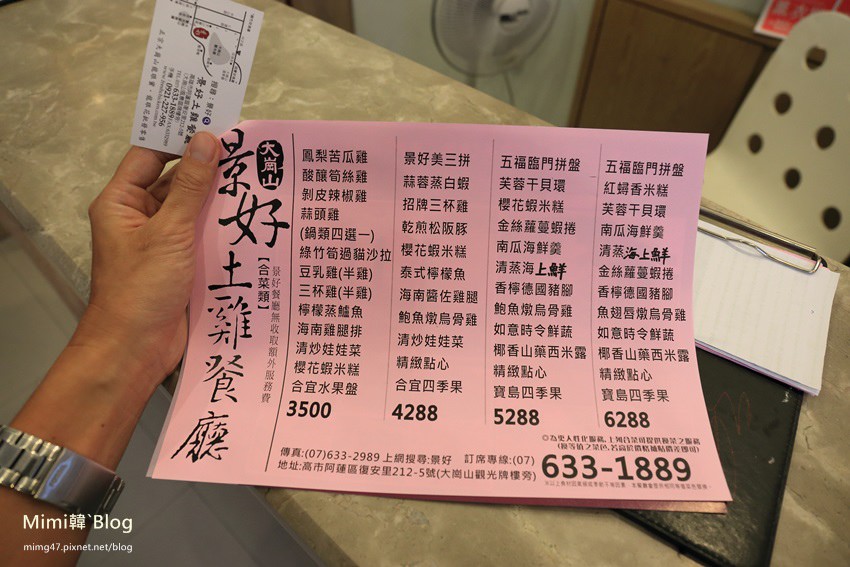 搜尋：景好
景好土雞餐廳
633-1899
(0921-227-956
大崗山
景好土雞餐廳
【合菜類】
景好餐廳無收取額外服務費
鳳梨苦瓜雞
酸釀筍絲雞
剝皮辣椒雞
蒜頭雞
(鍋類四選一)
綠竹筍過貓沙拉
豆乳雞(半雞)
三杯雞(半雞)
檸檬蒸鱸魚
海南雞腿排
清炒娃娃菜
櫻花蝦米糕
合宜水果盤
3500
景好美三拼
蒜蓉蒸白蝦
招牌三杯雞
乾煎松阪豚
櫻花蝦米糕
泰式檸檬魚
海南醬佐雞腿
鮑魚燉烏骨雞
清炒娃娃菜
精緻點心
合宜四季果
4288
五福臨門拼盤
芙蓉干貝環
櫻花蝦米糕
金絲蘿蔓蝦捲
南瓜海鮮羹
清蒸海上鮮
香檸德國豬腳
鮑魚燉烏骨雞
如意時令鮮蔬
椰香山藥西米露
精緻點心
寶島四季果
5288
五福臨門拼盤
紅蟳香米糕
芙蓉干貝環
南瓜海鮮羹
清蒸海上鮮
金絲蘿蔓蝦捲
香檸德國豬腳
魚翅唇燉烏骨雞
如意時令鮮蔬
椰香山藥西米露
精緻點心
寶島四季果
6288
◎為更人性化服務，上列合菜可提供換菜之服務
(換等值之菜色,若高於價格補貼價差即可)
傳真:(07)633-2989 上網搜尋:景好 訂席專線:(07)
633-1889
地址:高市阿蓮區復安里212-5號(大崗山觀光牌樓旁)
Mimi韓ˋBlog
mimg47.pixnet.net/blog